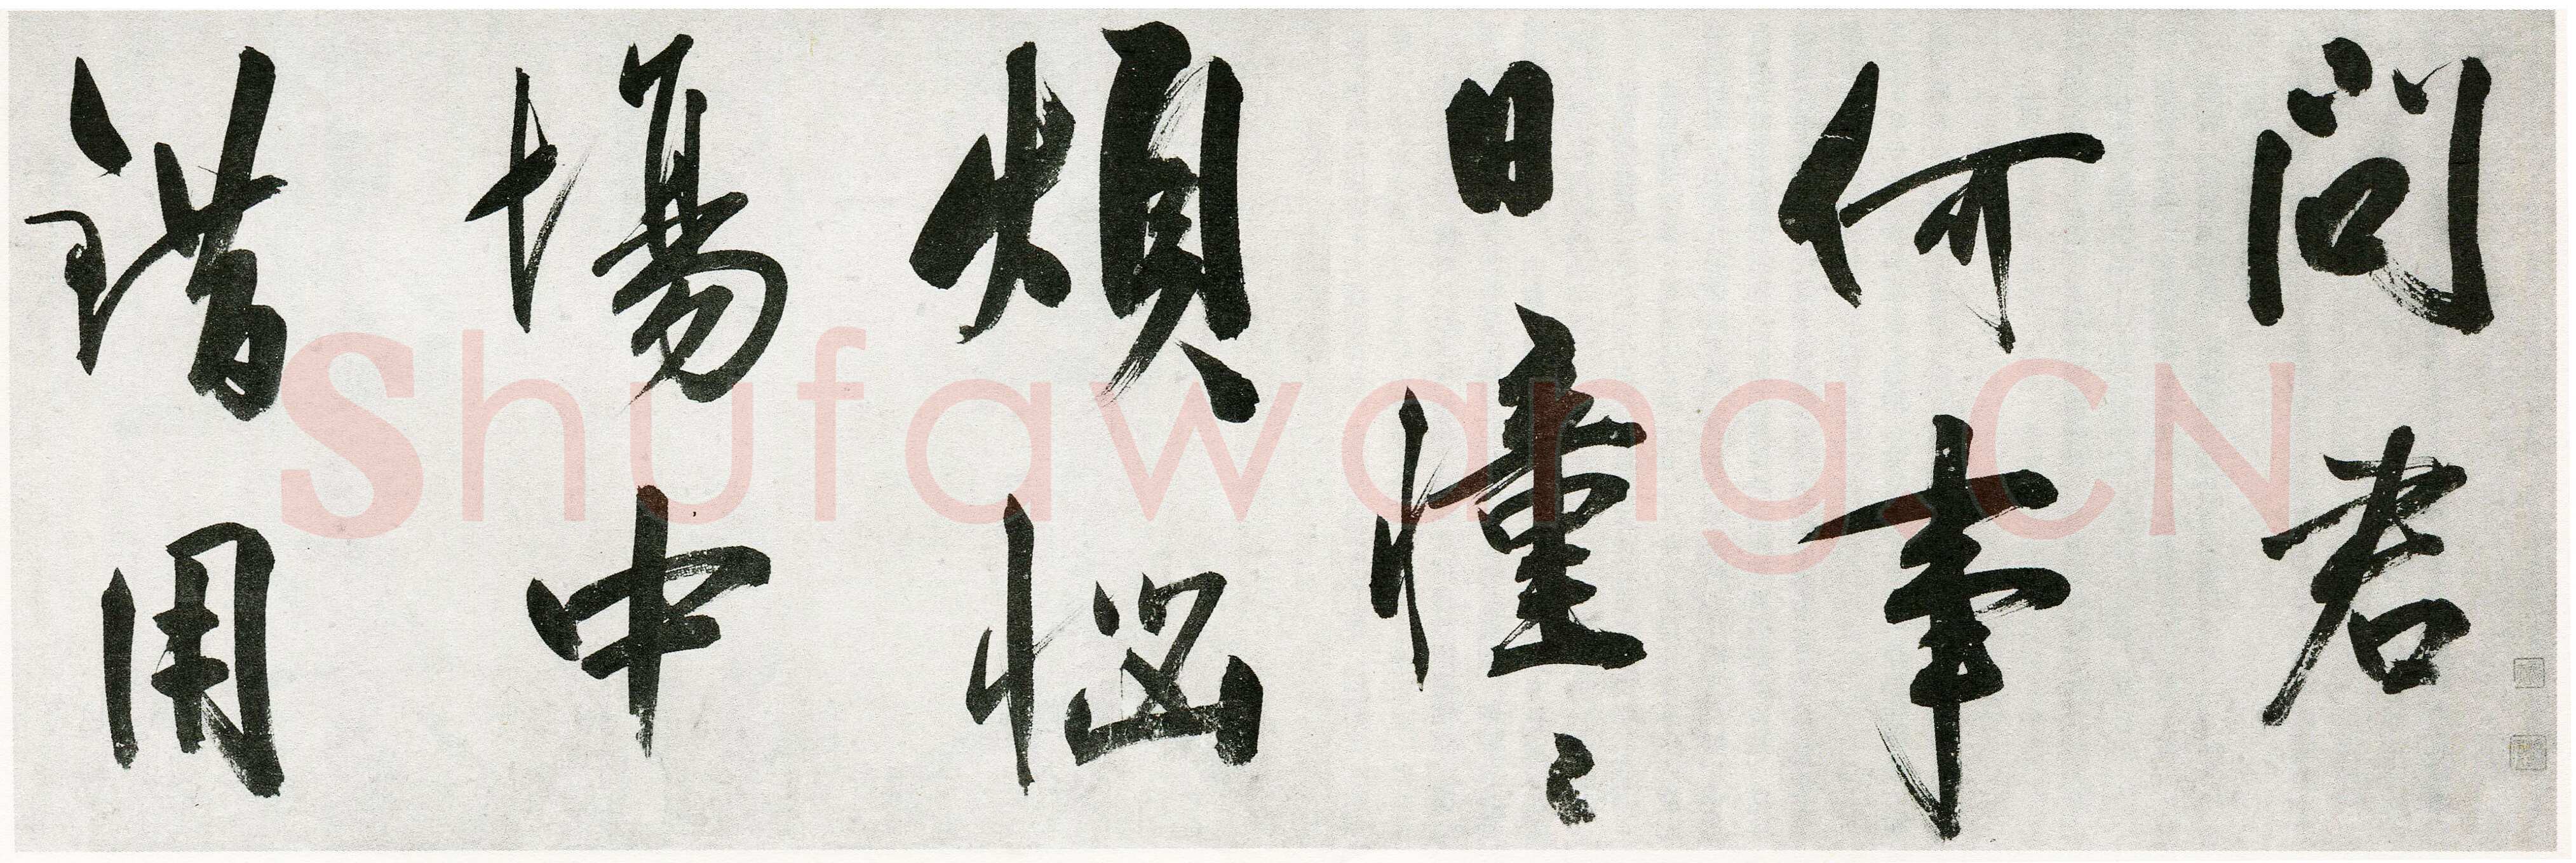 問君
何事
日憧〻
煩惱
場中
錯用
Shufawang.CN